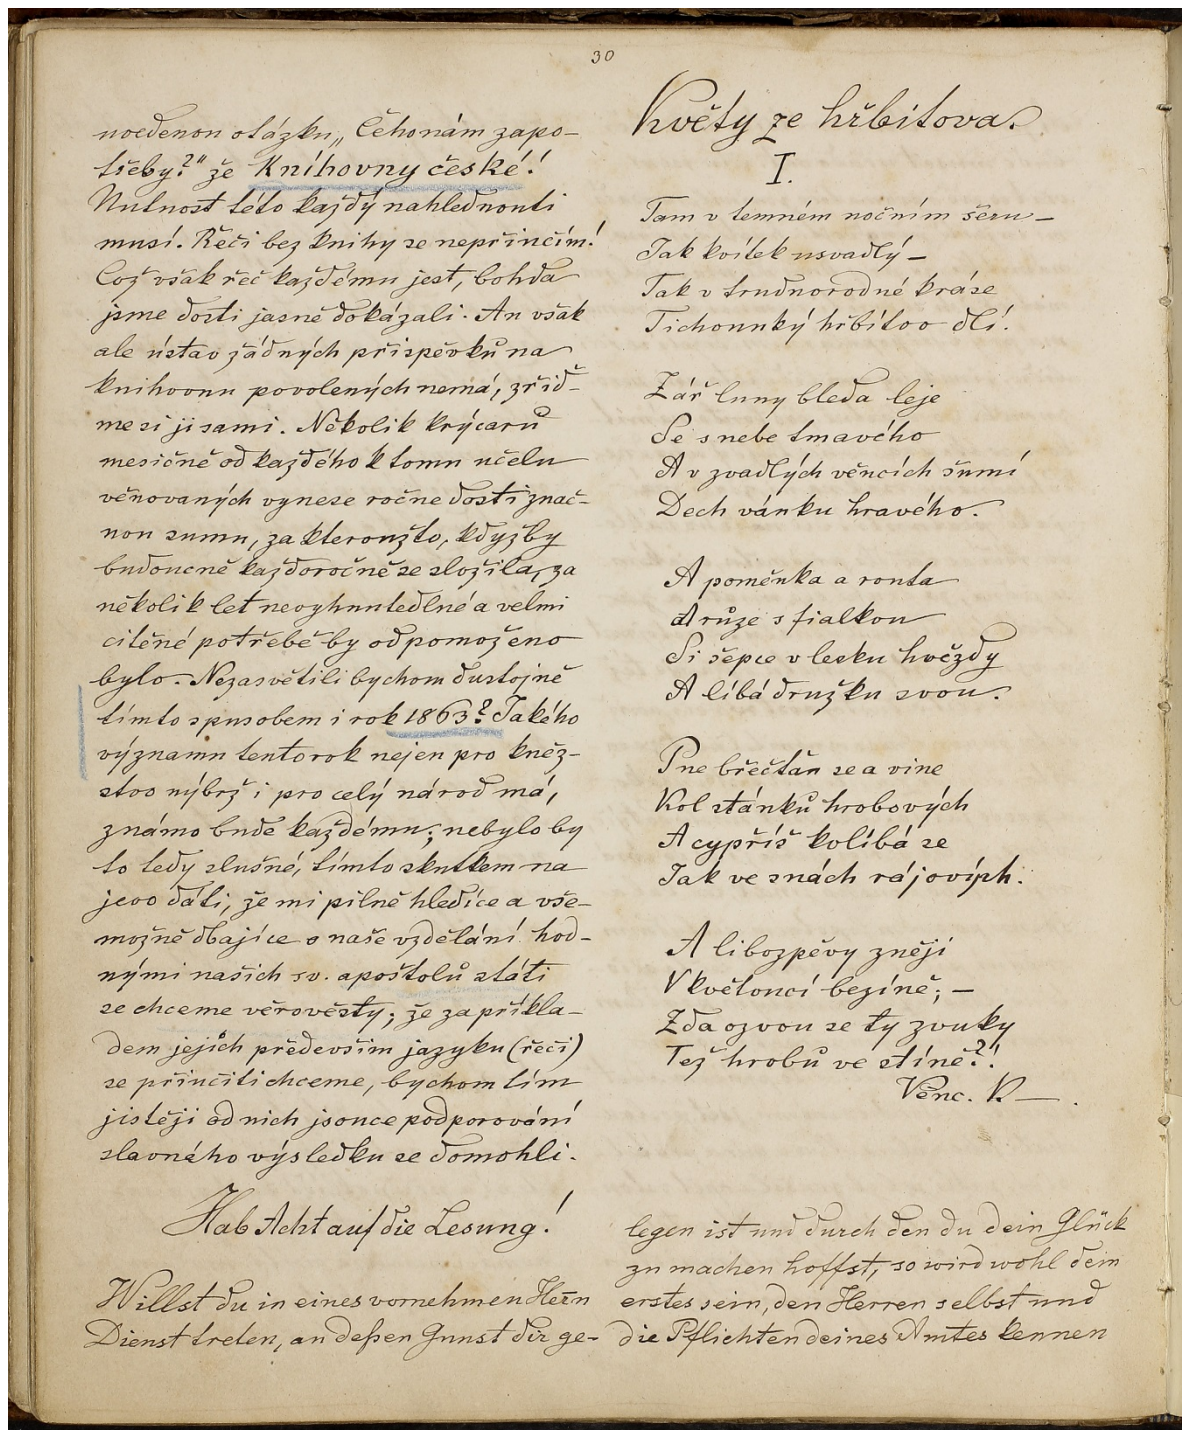 30
uvedenou otázku „Čeho nám zapo-
třeby?" že Knihovny české!
Nutnost této každý nahlednouti
musí. Řeči bez knihy se nepřiučím!
Což však řeč každému jest, bohda
jsme dosti jasně dokázali. An však
ale ústav žádných přispěvků na
knihovnu povolených nemá, zřiď-
me si ji sami. Několik krýcarů
mesičně od každého k tomu učelu
věnovaných vynese ročne dosti znač-
nou sumu, za kteroužto, kdyžby
budoucně každoročně se složila, za
několik let nevyhnutedlné a velmi
citěné potřebě by odpomoženo
bylo. Nezasvětili bychom dustojně
tímto spusobem i rok 1863? Jakého
významu tento rok nejen pro kněz-
stvo nýbrž i pro celý národ má,
známo bude každému; nebylo by
to tedy slušné, tímto skutkem na
jevo dáti, že mi pilně hledíce a vše-
možně dbajíce o naše vzdělání hod-
nými našich sv. apoštolů státi
se chceme věrověsty; že za příkla-
dem jejich předevšim jazyku (řeči)
se přiučiti chceme, bychom tím
jistěji od nich jsouce podporování
slavného výsledku se domohli.
Květy ze hřbitova.
I.
Tam v temném nočním šeru —
Jak kvítek usvadlý —
Tak v trudnorodné kráse
Tichounký hřbítov dlí.
Zář luny bleda leje
Se s nebe tmavého
A v zvadlých věncích šumí
Dech vánku hravého.
A poměnka a routa
A růze s fialkou
Si šepce v lesku hvězdy
A líbá družku svou.
Pne břečtan se a vine
Kol stánků hrobových
A cypříš kolíbá se
Jak ve snách rájovíph.
A libozpěvy znějí
V květoucí bezíně; —
Zda ozvou se ty zvuky
Tež hrobů ve stíně?!
Venc. K — .
Hab Acht auf die Lesung!
Willst du in eines vornehmen Herrn
Dienst treten, an deßen Gunst dir ge-
legen ist und durch den du dein Glück
zu machen hoffst, so wird wohl dein
erstes sein, den Herren selbst und
die Pflichten deines Amtes kennen